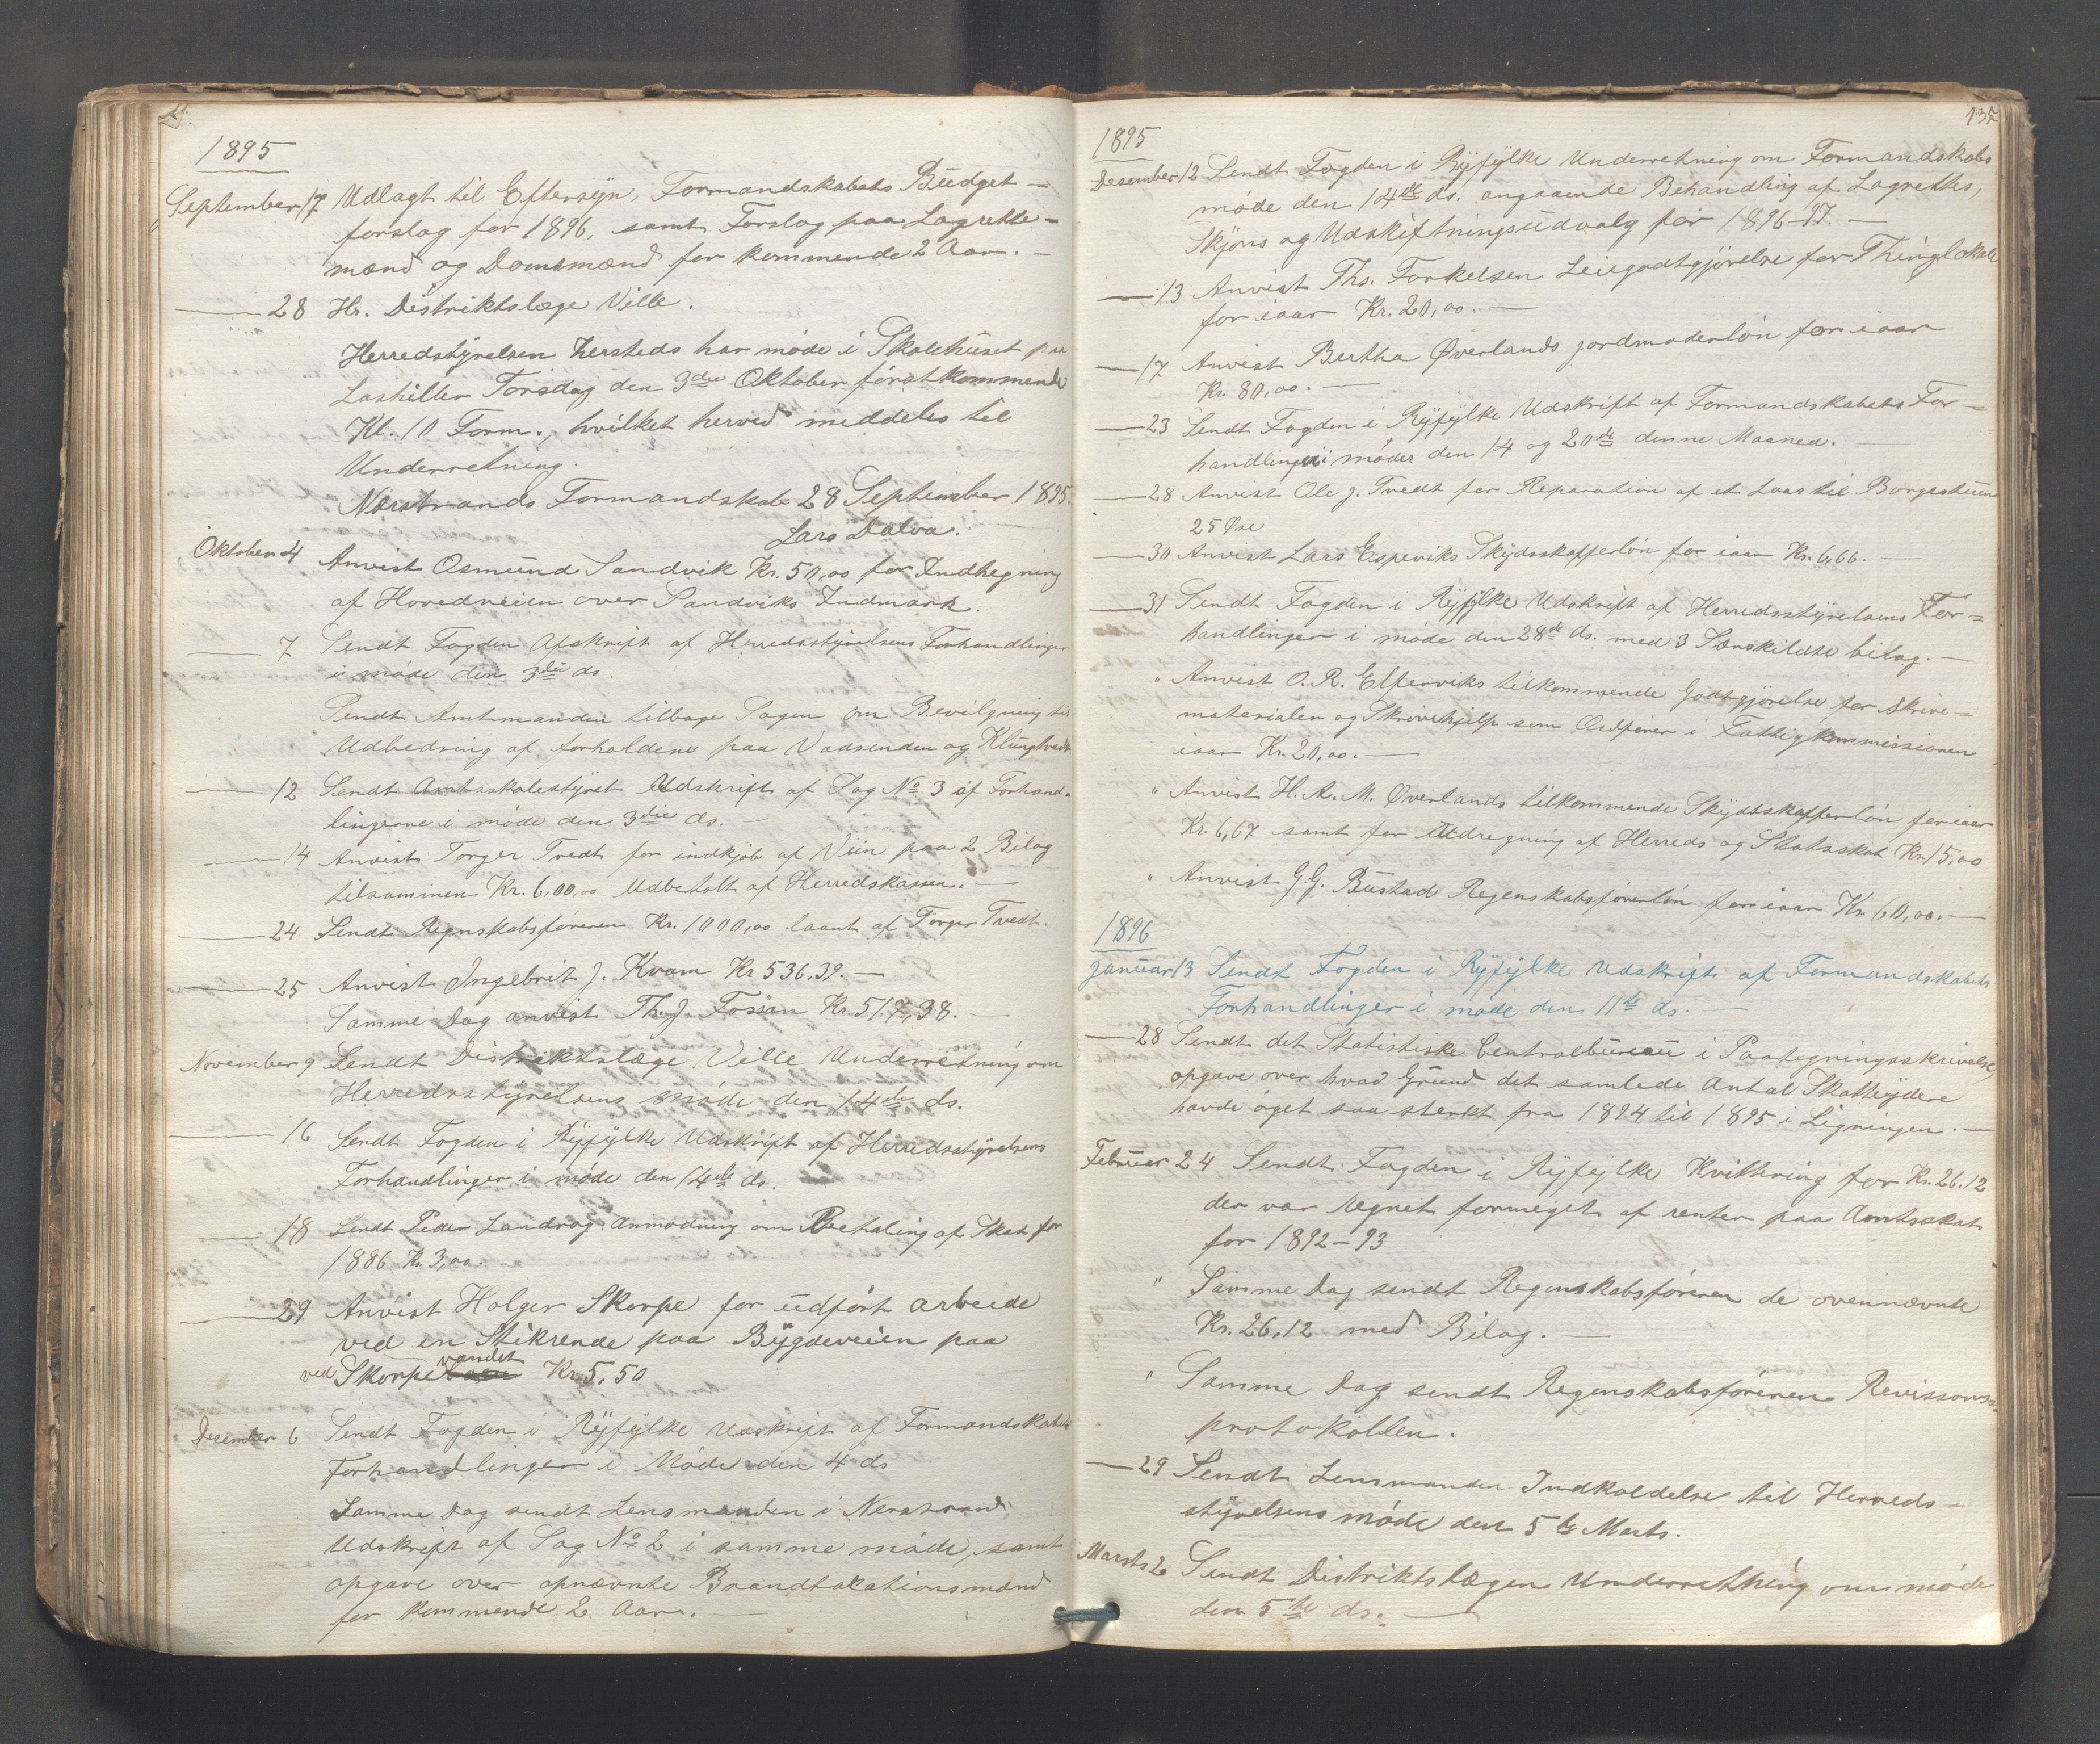 1895
September 17 Udlagt til Eftersyn, Formandskabets Budget-
forslag for 1896, samt Forslag paa Lagrette-
mænd og Domsmænd for kommende 2 Aar. -
28 Hr. Distriktslæge Ville.
Herredstyrelsen hersteds har møde i Skolehuset paa
Torsdag den 3die Oktober førstkommende
Kl. 10 Form., hvilket herved meddeles til
Underretning.
Nærstrands Formandskab 28 September 1895.
Lars Dalva.
Oktober 4 Anvist Osmund Sandvik Kr. 50,00 for Indhegning
af Hovedveien over Sandviks Indmark.
7 Sendt Fogden Afskrift af Herredsstyrelsens Forhandlinger
i møde den 3die ds.
Sendt Amtmanden tilbage Sagen om Bevilgning til
Udbedring af forholdene paa Vadsenden og Klungtvedt
12 Sendt Amtsskolestyret Udskrift af Sag No 3 af Forhand-
lingerne i møde den 3die ds. -
14 Anvist Torger Tvedt for indkjøb af Viin paa 2 Bilag
tilsammen Kr. 6,00,00 Udbetalt af Herredskassen. -
24 Sendt Regnskabsføreren Kr. 1000,00 laant af Torger Tvedt.
25 Anvist Ingebrit J. Kvam Kr 536,39. -
Samme Dag anvist Th. J. Fossan Kr. 517,38. -
November 9 Sendt Distriktslæge Ville Underretning om
Herredsstyrelsens møde den 14de ds.
16 Sendt Fogden i Ryfylke Udskrift af Herredsstyrelsens
Forhandlinger i møde den 14de ds.
18 Sendt Peder Landrog Anmodning om Betaling af Skat for
1886 Kr. 3,00.
29 Anvist Holger Skorpe for udført arbeide
ved en Stikrende paa Bygdeveien paa
vandet
ved Skorpe Kr. 5,50
Desember 6 Sendt Fogden i Ryfylke Udskrift af Formandskabets
Forhandlinger i Møde den 4 ds
Samme Dag sendt Lensmanden i Nerstrand
Udskrift af Sag No 2 i samme møde, samt
opgave over opnævnte Brandtakationsmænd
for kommende 2 Aar. -
137
1895
Desember 12 Sendt Fogden i Ryfylke Underretning om Formandskabs
møde den 14de ds. angaaende Behandling af Lagrettes,
Skjøns og Udskiftningsudvalg for 1896-97. -
13 Anvist Ths. Torkelsen Leiegodtgjørelse for Thinglokale
for iaar Kr. 20,00. -
17 Anvist Bertha Øverlands jordmoderløn for iaar
Kr. 80,00. -
23 Sendt Fogden i Ryfylke Udskrift af Formandskabets For-
handlinger i møder den 14 og 20de denne Maaned. -
28 Anvist Ole J. Tvedt for Reparation af et Laas til Borgestuen
25 Øre
30 Anvist Lars Espeviks Skydsskafferløn for iaar Kr. 6,66. -
31 Sendt Fogden i Ryfylke Udskrift af Herredsstyrelsens For-
handlinger i møde den 28de ds. med 3 Særskildte bilag. -
" Anvist O. R. Elferviks tilkommende Godtgjørelse for Skrive-
materialer og Skrivehjelp som Ordfører i Fattigkommissionen
iaar Kr. 20,00. -
" Anvist H. A. M. Øverlands tilkommende Skydsskafferløn for iaar
Kr. 6,67 samt for Udregning af Herreds og Statsskat Kr. 15,00
" Anvist G. G. Bustad Regenskabsførerløn for iaar Kr. 60,00. -
1896
Januar 13 Sendt Fogden i Ryfylke Udskrift af Formandskabets
Forhandlinger i møde den 11te ds. -
28 Sendt det Statistiske Centralbureau i Paategningsskrivelse,
opgave over hvad Grund det samlede Antal Skatteydere
havde øget saa sterkt fra 1894 til 1895 i Ligningen. -
Februar 24 Sendt Fogden i Ryfylke Kvittring for Kr. 26,12
der var regnet formeget af renter paa Amtsskat
for 1892-93
" Samme Dag sendt Regenskabsføreren de ovennævnte
Kr. 26,12 med Bilag. -
" Samme Dag sendt Regenskabsføreren Revissons-
protokollen.
29 Sendt Lensmanden Indkaldelse til Herreds-
styrelsens møde den 5te Marts.
Marsts 2 Sendt Distriktslægen Underretning om møde
den 5te ds. -